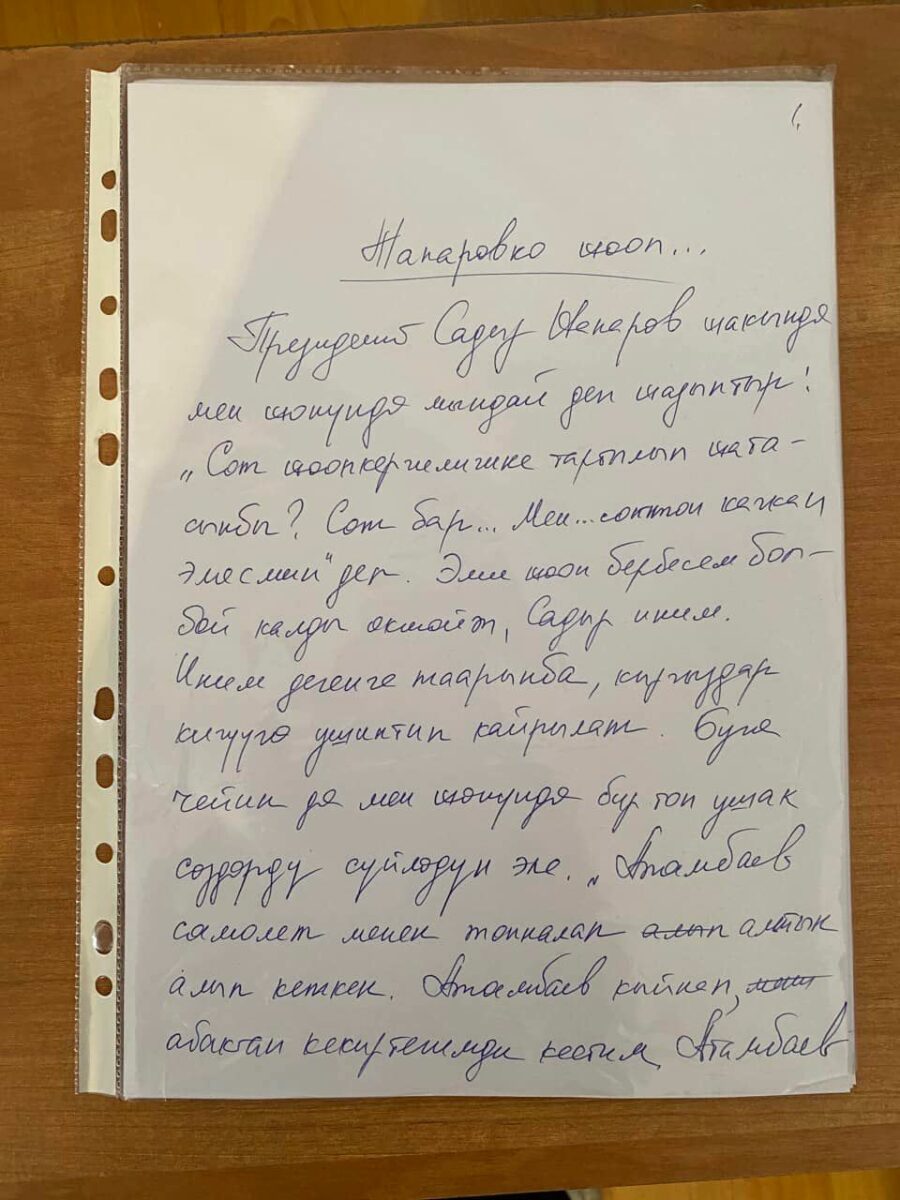 1.
Жапаровко жооп...
Президент Садыр Жапаров жакында
мен жөнүндө мындай деп жазыптыр:
„Сот жоопкерчиликке тартылып жата-
сынбы? Сот бар... Мен...соттон качкан
эмесмин" деп. Эми жооп бербесем бол-
бой калды окшойт, Садыр иним.
Иним дегенге таарынба, кыргыздар
кичүүгө ушинтип кайрылат. Буга
чейин да мен жөнүндө бир топ ушак
сөздөрдү сүйлөдүң эле. „Атамбаев
самолет менен тонналап алып алтын
алып кеткен. Атамбаев кыйнап,
абактан кекиртегимди кестим, Атамбаев